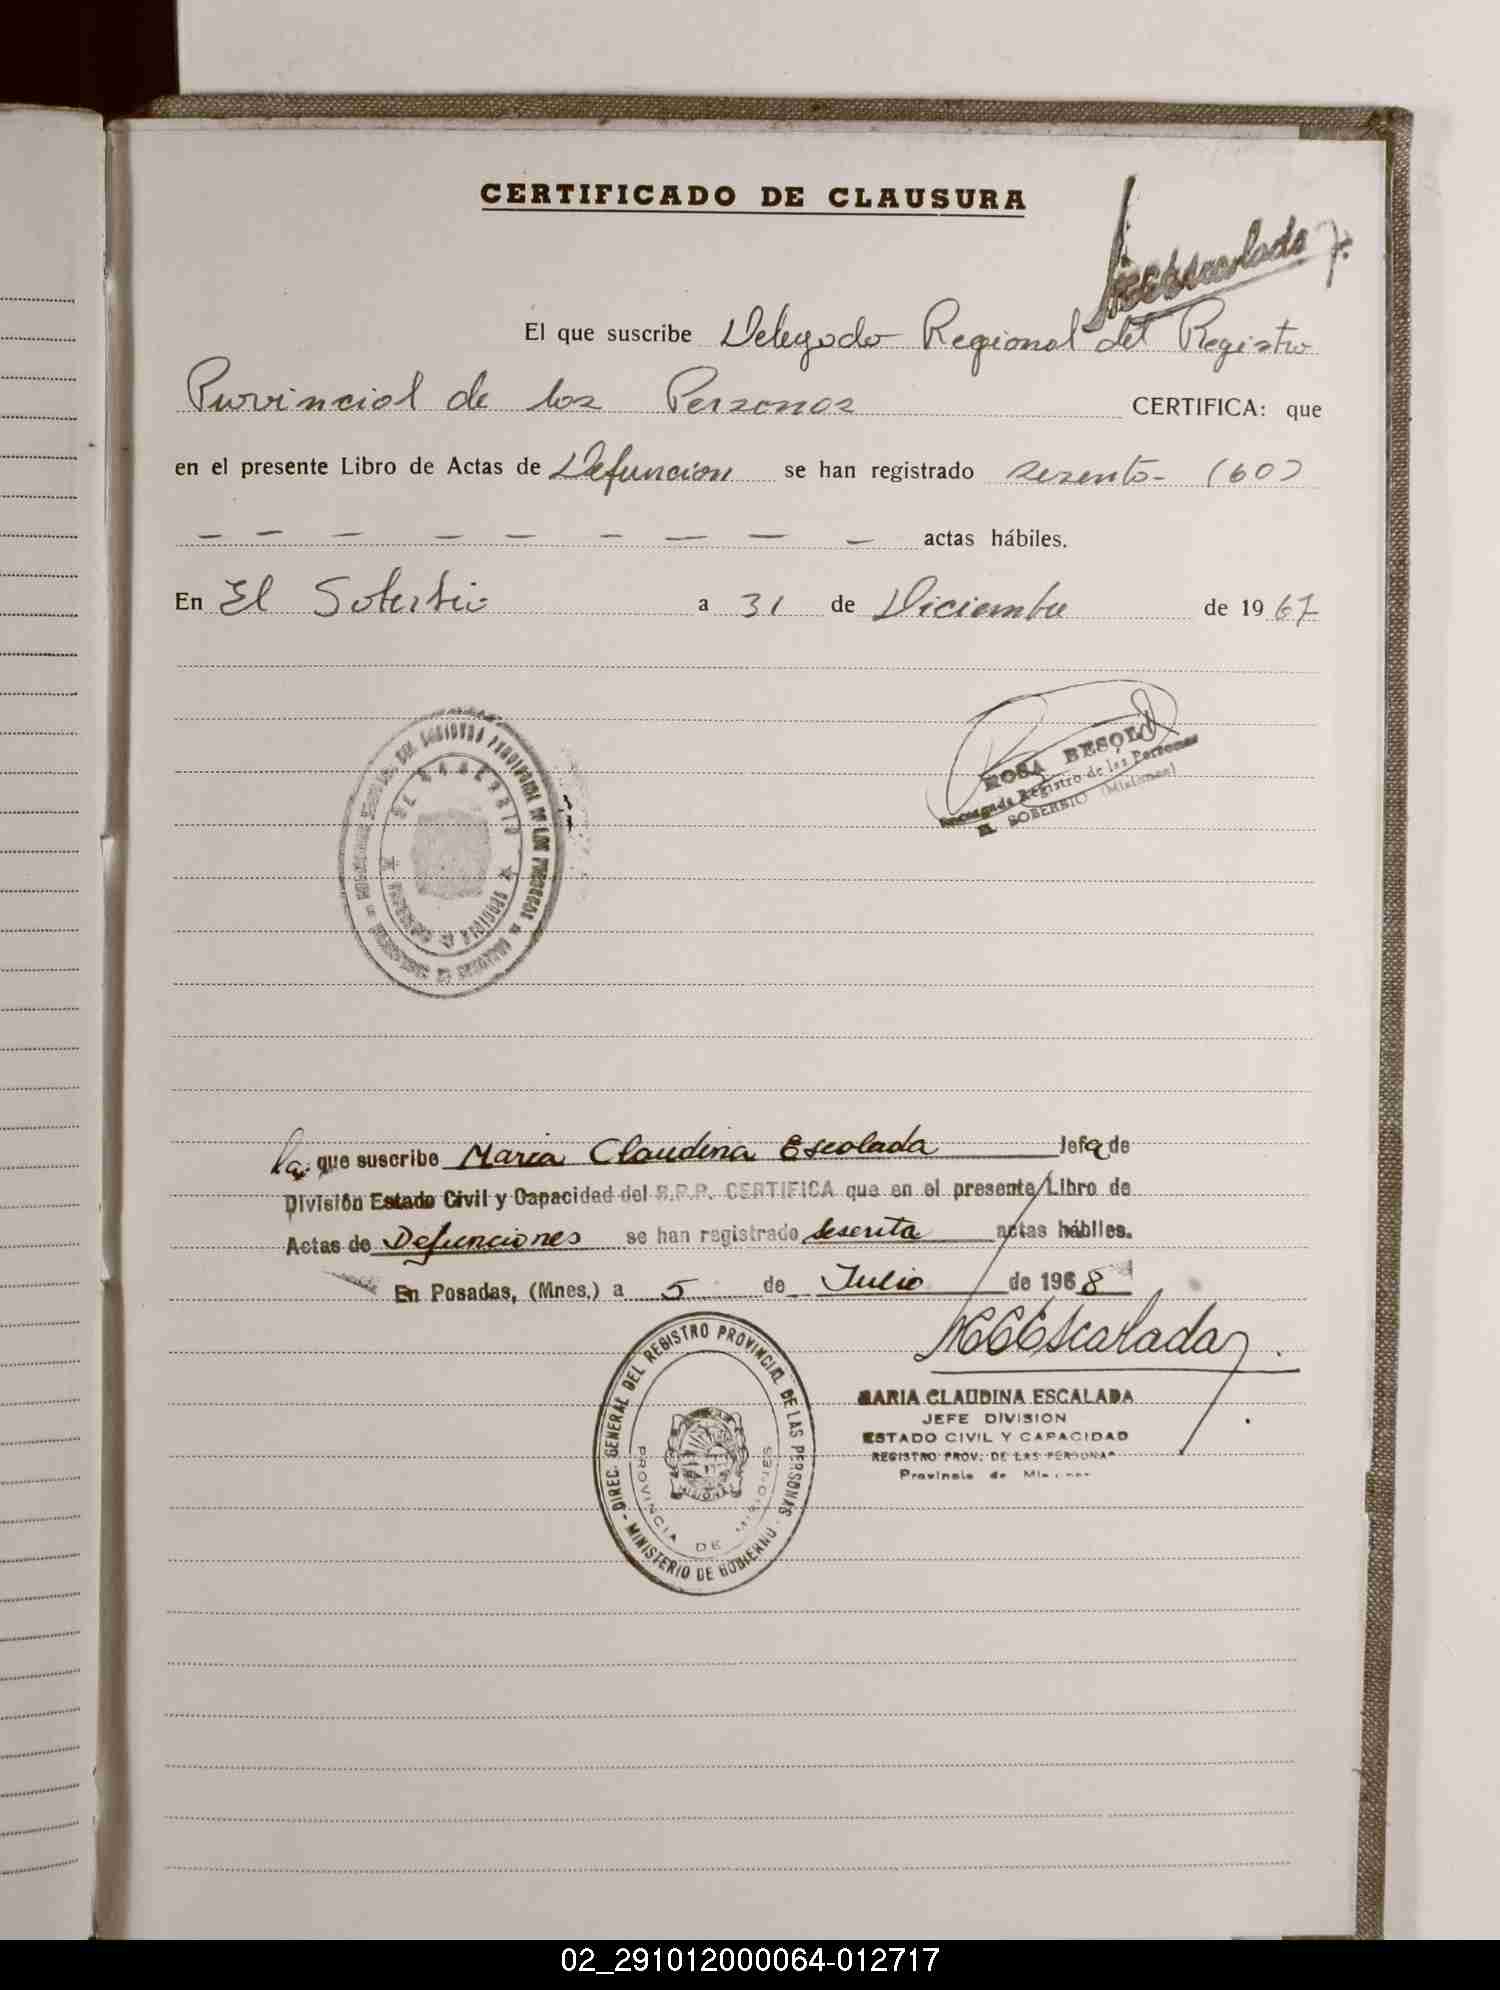 CERTIFICADO DE CLAUSURA
MCEscalada
El que suscribe Delegado Regional del Registro
Provincial de las Personas CERTIFICA: que
en el presente Libro de Actas de Defuncion se han registrado sesenta- (60)
— — — — — — — — — actas hábiles.
En El Soberbio a 31 de Diciembre de 1967
ROSA BESOLD
Encargada Registro de las Personas
EL SOBERBIO (Misiones)
DEL REGISTRO PROVINCIAL DE LAS PERSONAS
EL SOBERBIO
La que suscribe Maria Claudina Escalada Jefa de
División Estado Civil y Capacidad del R.P.P. CERTIFICA que en el presente Libro de
Actas de Defunciones se han registrado sesenta actas hábiles.
En Posadas, (Mnes.) a 5 de Julio de 1968
MCEscalada
DIREC. GENERAL DEL REGISTRO PROVINCIAL DE LAS PERSONAS - MINISTERIO DE GOBIERNO -
PROVINCIA DE MISIONES
MISIONES
MARIA CLAUDINA ESCALADA
JEFE DIVISION
ESTADO CIVIL Y CAPACIDAD
REGISTRO PROV. DE LAS PERSONAS
Provincia de Misiones
02_291012000064-012717